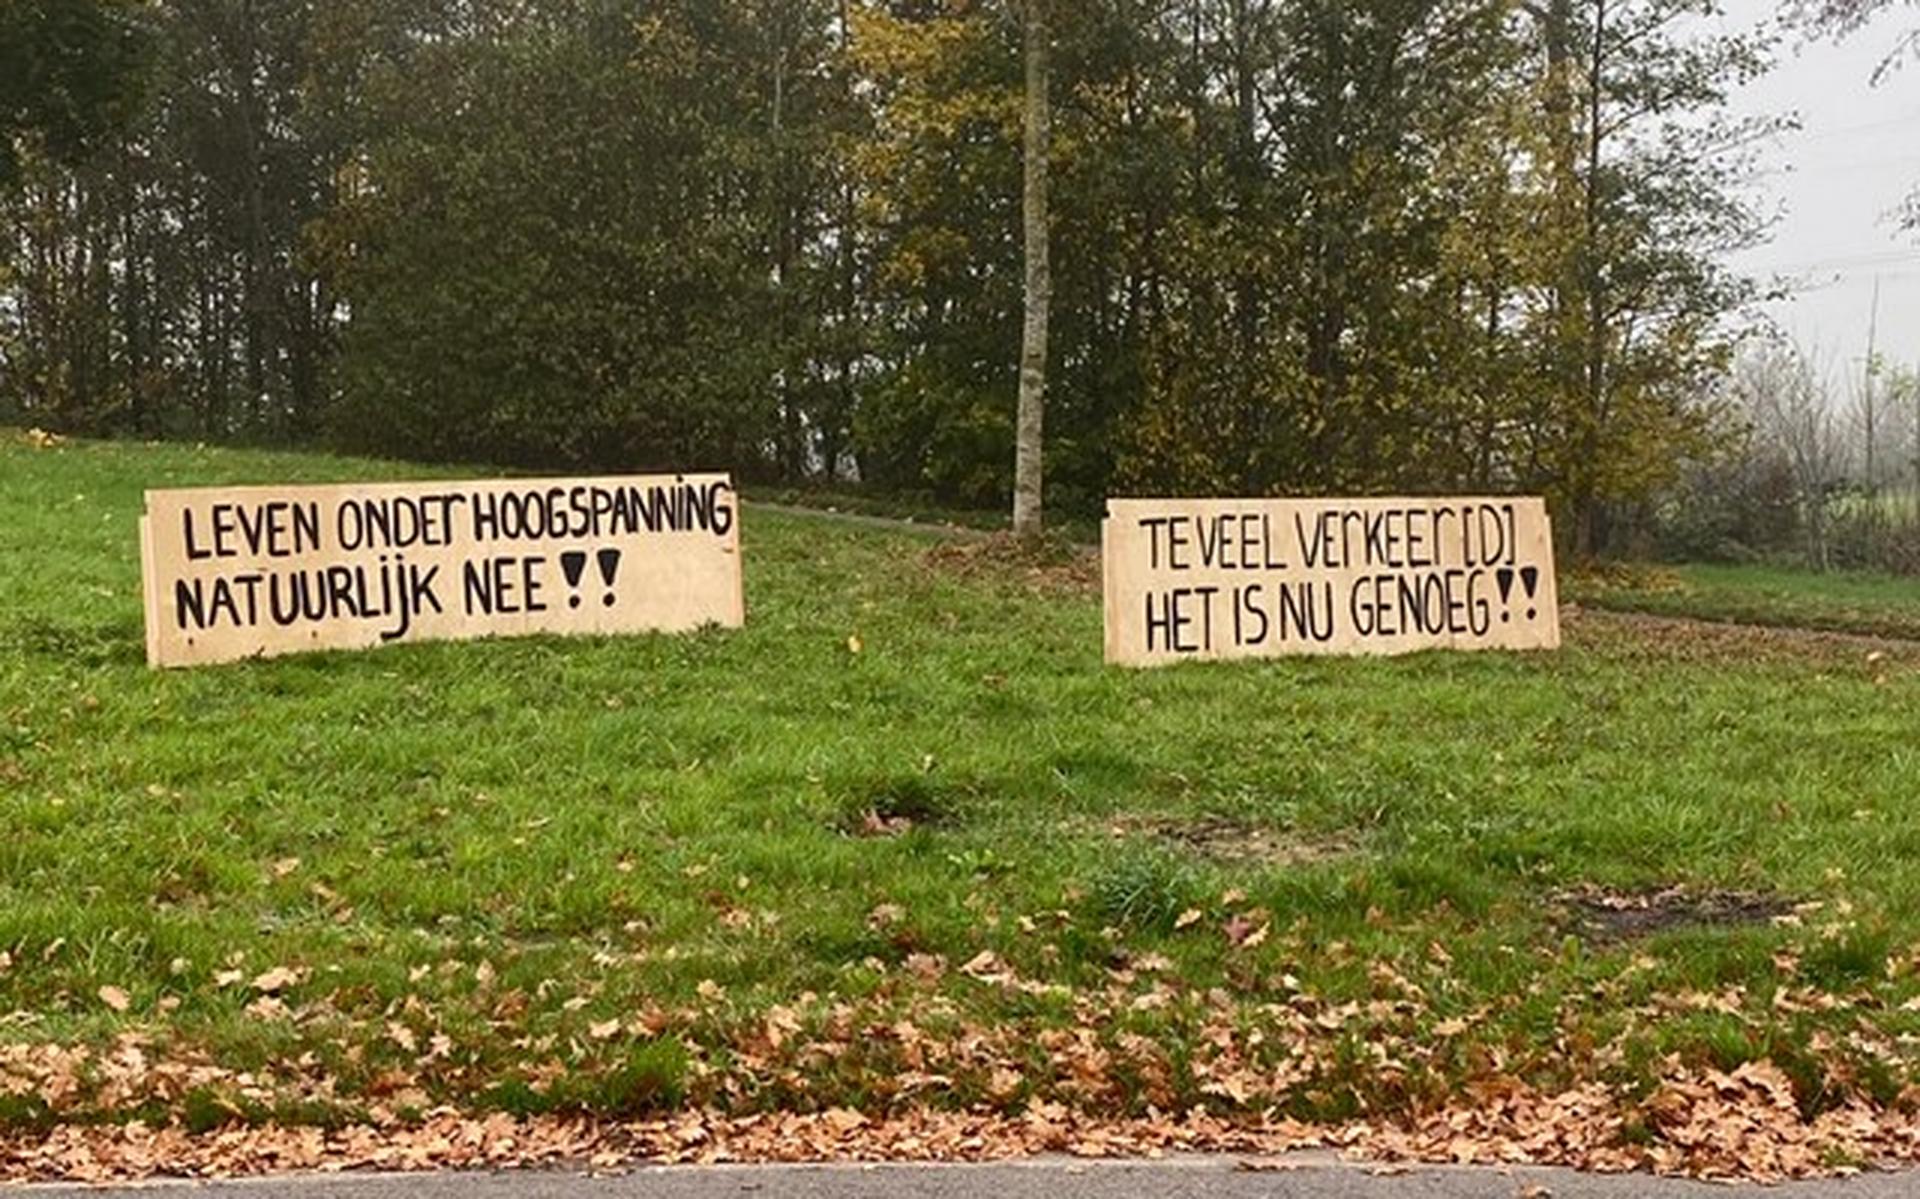 LEVEN ONDER HOOGSPANNING
NATUURLIJK NEE!!
TEVEEL VERKEER[D]
HET IS NU GENOEG!!